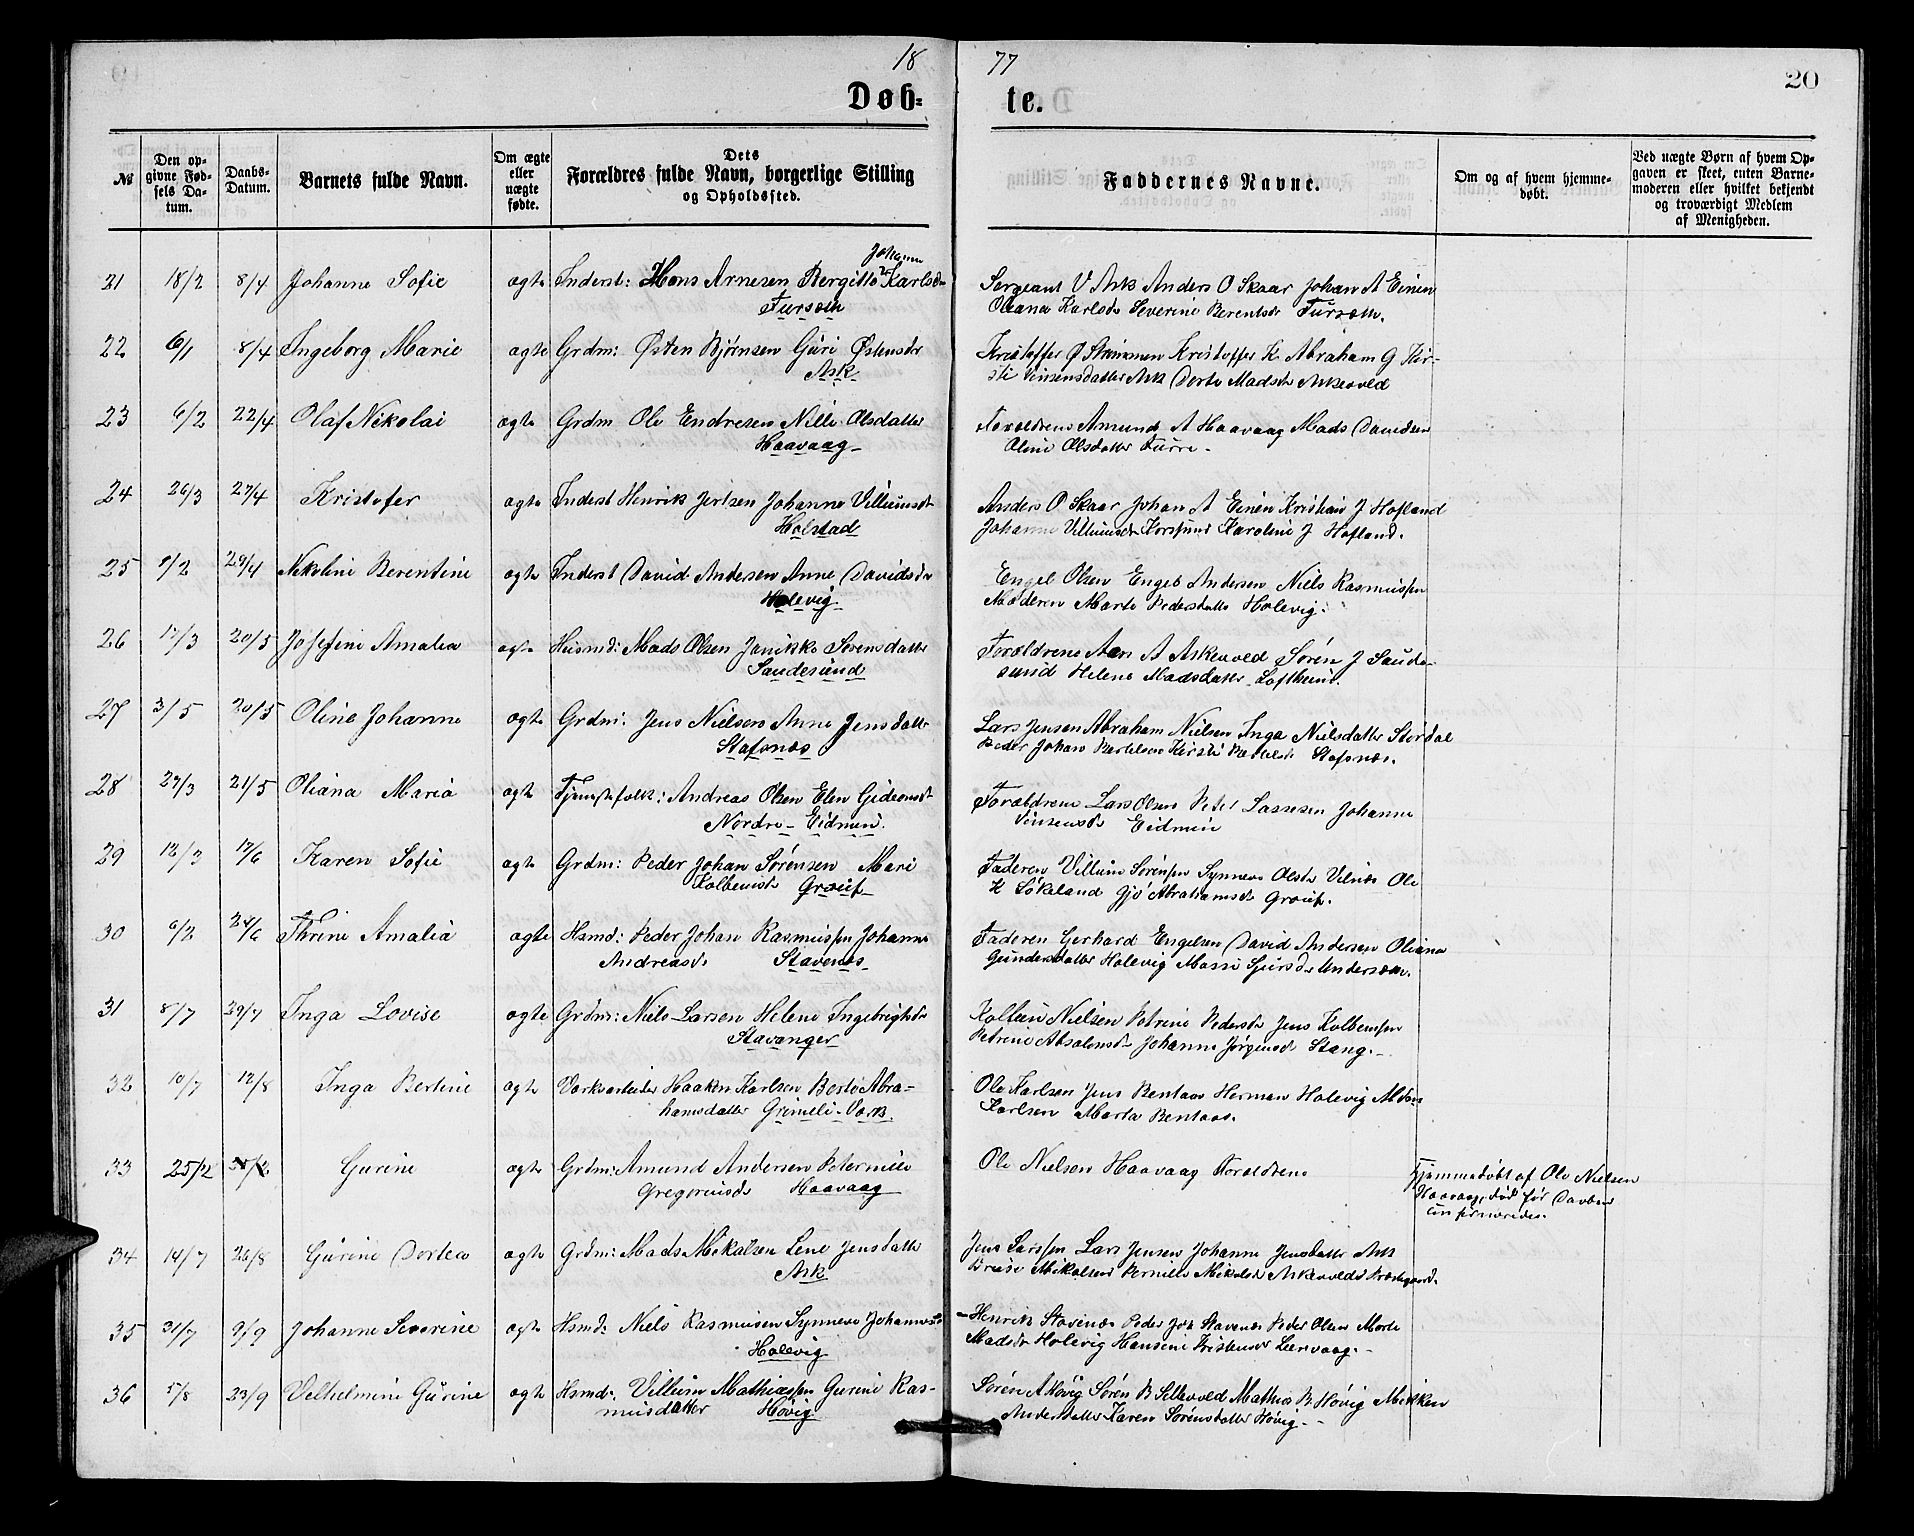 18 77
20
Døb- te.
№
Den op-
givne Fød-
sels Da-
tum.
Daabs-
Datum.
Barnets fulde Navn.
Om ægte
eller
uægte
fødte.
Dets
Forældres fulde Navn, borgerlige Stilling
og Opholdssted.
Faddernes Navne.
Om og af hvem hjemme-
døbt.
Ved uægte Børn af hvem Op-
gaven er skeet, enten Barne-
moderen eller hvilket bekjendt
og troværdigt Medlem
af Menigheden.
Johanne
21 18/2 8/4 Johanne Sofie ægte Inderst: Hans Arnesen Bergitte Karlsd Sergeant V Ask Anders O Skaar Johan A Einen
Fursæth Oliana Karlsdr Severine Berentsdr Fursæth.
22 6/1 8/4 Ingeborg Marie ægte Grdm: Østen Bjørnsen Guri Østensdr Kristoffer Ø Kristoffer K Abraham G Kir-
Ask sti Vinsensdatter Ask Dorte Madsdr Askevold
23 6/2 22/4 Olaf Nikolai ægte Grdm Ole Endresen Nille Olsdatter Forældrene Amund A Haavaag Mads Davidsen
Haavaag Oline Olsdatter Furre
24 26/3 27/4 Kristofer ægte Inderst Henrik Jertsen Johanne Villumsdr Anders O Skaar Johan A Einen Kristian J Hofland
Holstad Johanne Villumsdr Korssund Karoline J Hofland.
25 9/2 29/4 Nikoline Berentine ægte Inderst David Andersen Anne Davidsdr Engel Olsen Engeb Andersen Niels Rasmussen
Holevig Moderen Marte Pedersdatter Holevig.
26 17/3 20/5 Josefine Amalia ægte Husmd: Mads Olsen Janikke Sørensdatter Forældrene Aan A Askevold Søren J Saude-
Saudesund sund Helene Madsdatter Loftheim.
27 3/5 20/5 Oline Johanne ægte Grdm: Jens Nielsen Anne Jensdatter Lars Jensen Abraham Nielsen Inga Nielsdatter Stordal
Stafsnæs Peder Johan Bertelsen Kirsti Stafsnæs.
28 27/3 21/5 Oliana Maria ægte Tjenestefolk: Andreas Olsen Elen Gideonsdr Forældrene Lars Olsen Peter Lassesen Johanne
Nordre Eidmin. Vinsensdr Eidmin
29 12/3 17/6 Karen Sofie ægte Grdm: Peder Johan Sørensen Mari Faderen Villum Sørensen Synneve Olsdr Vilnes Ole
Kolbeinsdr Grøief K Løkeland Gjø Abrahamsdr Grøief.
30 6/2 24/6 Thrine Amalia ægte Hsmd: Peder Johan Rasmussen Johanne Faderen Gerhard Engelsen David Andersen Oliana
Andreasdr Stavenes Gundersdatter Holevig Massi Sjursdr Undersæth.
31 8/7 29/7 Inga Lovise ægte Grdm: Niels Larsen Helene Ingebrigtsdr Kolbein Nielsen Petrine Pedersdr Jens Kolbensen
Stavanger Petrine Absalonsdr Johanne Jørgensdr Stang.
32 10/7 12/8 Inga Bertine ægte Værksarbeider Haaken Karlsen Berte Abra- Ole Karlsen Jens Bentaas Herman Holevig
hamsdatter Grimeli-Værk. Karlsen Marta Bentaas.
33 25/2 Gurine ægte Grdm: Amund Andersen Petermile Ole Nielsen Haavaag Forældrene Hjemmedøbt af Ole Nielsen
Gregoriusdr Haavaag Haavaag, død før Daaben
34 14/7 26/8 Gurine Dortea ægte Grdm: Mads Mikalsen Lene Jensdatter Jens Larssen Lars Jensen Johanne Jensdatter Ask
Ask Mikalsen Pernille Mikalsdr Askevolds Præstegaard.
35 31/7 9/9 Johanne Severine ægte Hsmd: Niels Rasmusen Synneve Johannes Henrik Stavenæs Peder Joh Stavenæs Peder Olsen Marte
Holevig Madsdr Holevig Hansine Kristensdr Leirvaag.
36 5/8 23/9 Velhelmine Gurine ægte Hsmd: Villum Mathiassen Gurine Ras- Søren A Høvig Søren B Sellevold Mathias B Høvig Mikken
musdatter Høvig Andersdatter Karen Sørensdatter Høvig